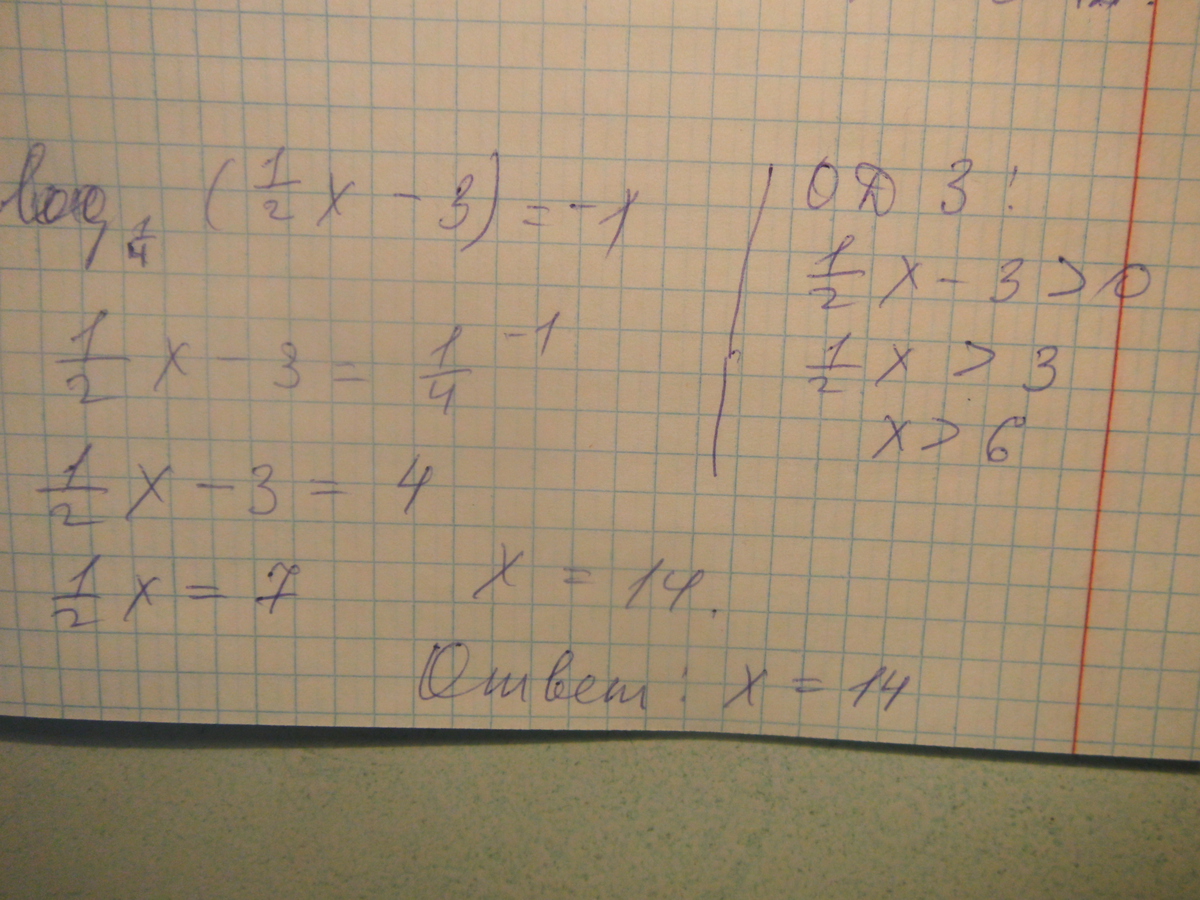 log 1/4 (1/2 x - 3) = -1
1/2 x - 3 = 1/4 ^-1
1/2 x - 3 = 4
1/2 x = 7 x = 14.
ОДЗ:
1/2 x - 3 > 0
1/2 x > 3
x > 6
Ответ: x = 14